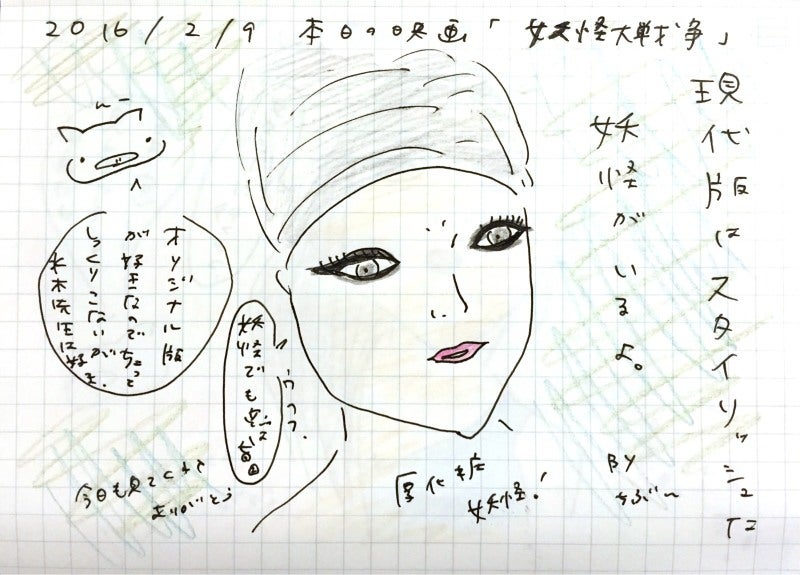 2016/2/9 本日の映画「妖怪大戦争」
現代版はスタイリッシュな
妖怪がいるよ。
BY
ちぶ〜
オリジナル版
が好きなのでちょっと
しっくりこないが
水木先生は好き。
ウフフ.
妖怪でも
厚化粧
妖怪!
今日も見てくれて
ありがとう